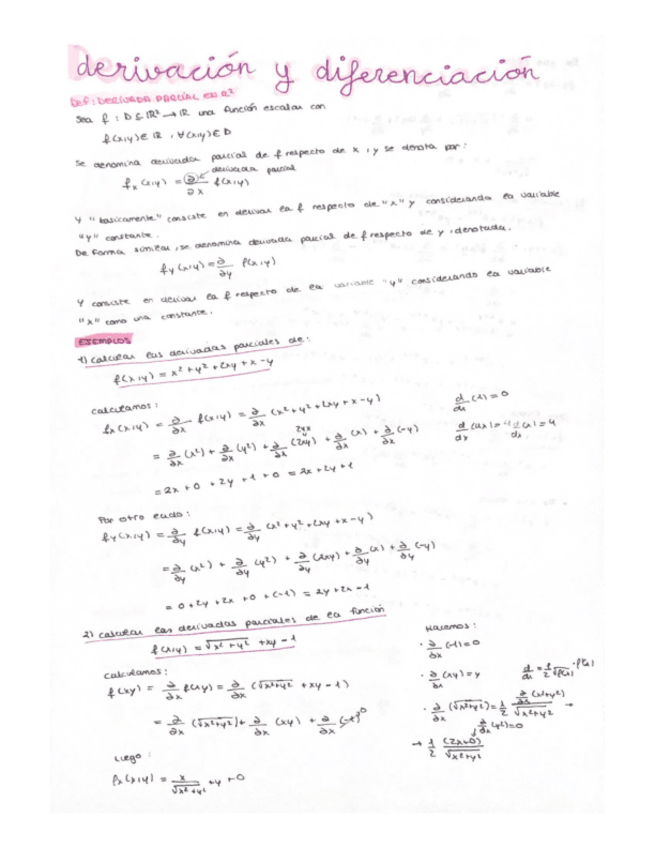 derivación y diferenciación
DEF: DERIVADA PARCIAL EN R²
Sea f : D ⊆ IR² → IR una función escalar con
f(x,y) ∈ IR, ∀(x,y) ∈ D
Se denomina derivada parcial de f respecto de x, y se denota por:
derivada parcial
f_x(x,y) = ∂/∂x f(x,y)
Y "basicamente" consiste en derivar la f respecto de "x" y considerando la variable
"y" constante.
De forma similar, se denomina derivada parcial de f respecto de y, denotada.
f_y(x,y) = ∂/∂y f(x,y)
Y consiste en derivar la f respecto de la variable "y" considerando la variable
"x" como una constante.
EJEMPLOS
1) calcular las derivadas parciales de:
f(x,y) = x² + y² + 2xy + x - y
calculamos:
f_x(x,y) = ∂/∂x f(x,y) = ∂/∂x (x² + y² + 2xy + x - y)
d/dx (1) = 0
= ∂/∂x (x²) + ∂/∂x (y²) + ∂/∂x (2xy) + ∂/∂x (x) + ∂/∂x (-y)
d/dx (4x) = 4 d/dx (x) = 4
= 2x + 0 + 2y + 1 + 0 = 2x + 2y + 1
Por otro lado:
f_y(x,y) = ∂/∂y f(x,y) = ∂/∂y (x² + y² + 2xy + x - y)
= ∂/∂y (x²) + ∂/∂y (y²) + ∂/∂y (2xy) + ∂/∂y (x) + ∂/∂y (-y)
= 0 + 2y + 2x + 0 + (-1) = 2y + 2x - 1
2) calcular las derivadas parciales de la función
f(x,y) = √(x² + y²) + xy - 1
calculamos:
f(xy) = ∂/∂x f(x,y) = ∂/∂x (√(x²+y²) + xy - 1)
= ∂/∂x (√(x²+y²)) + ∂/∂x (xy) + ∂/∂x (-1) 0
Luego:
f_x(x,y) = x/√(x²+y²) + y + 0
Hacemos:
· ∂/∂x (-1) = 0
· ∂/∂x (xy) = y
· ∂/∂x (√(x²+y²)) = 1/2 ∂/∂x (x²+y²)/√(x²+y²) →
∂/∂x (y²) = 0
→ 1/2 (2x+0)/√(x²+y²)